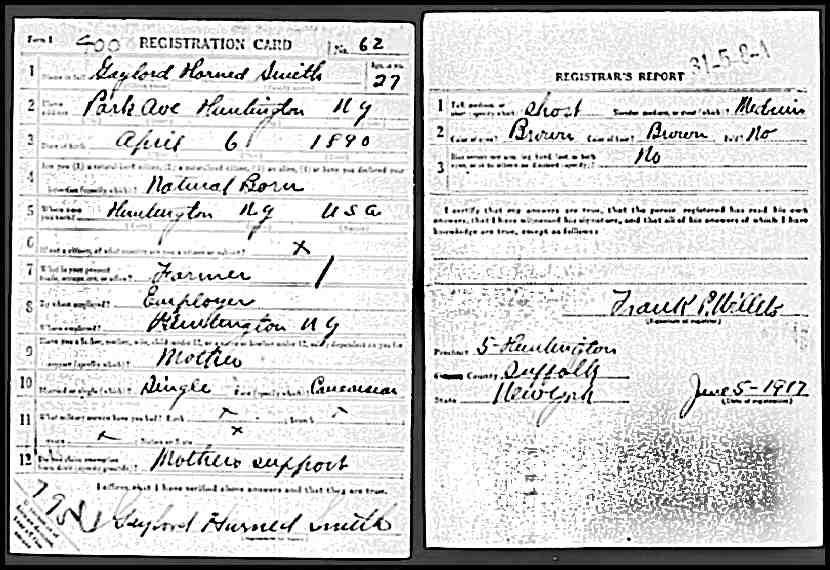 Form 1 REGISTRATION CARD No. 62
1 Name in full Gaylord Horned Smith Age, in yrs. 27
2 Home address Park Ave Huntington NY
3 Date of birth April 6 1890
4 Are you (1) a natural born citizen, (2) a naturalized citizen, (3) an alien, (4) or have you declared your
intention (specify which)? Natural Born
5 Where were you born? Huntington NY USA
6 If not a citizen, of what country are you a citizen or subject? X
7 What is your present trade, occupation, or office? Farmer 1
8 By whom employed? Employer
Where employed? Huntington NY
9 Have you a father, mother, wife, child under 12, or a sister or brother under 12, solely dependent on you for
support (specify which)? Mother
10 Married or single (which)? Single Race (specify which)? Caucasian
11 What military service have you had? Rank Branch
years Nation or State x
12 Do you claim exemption from draft (specify grounds)? Mothers support
I affirm that I have verified above answers and that they are true.
Gaylord Horned Smith
31-5-2-A
REGISTRAR'S REPORT
1 Tall, medium, or short (specify which)? Short Slender, medium, or stout (which)? Medium
2 Color of eyes? Brown Color of hair? Brown Bald? No
3 Has person lost arm, leg, hand, foot, or both eyes, or is he otherwise disabled (specify)? No
I certify that my answers are true, that the person registered has read his own
answers, that I have witnessed his signature, and that all of his answers of which I have
knowledge are true, except as follows:
Frank P. Willets
(Signature of registrar)
Precinct 5-Huntington
County Suffolk
State New York June 5-1917
(Date of registration)